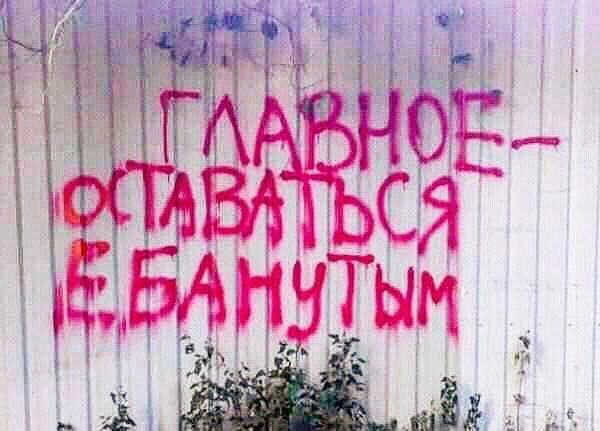 ГЛАВНОЕ-
ОСТАВАТЬСЯ
ЕБАНУТЫМ